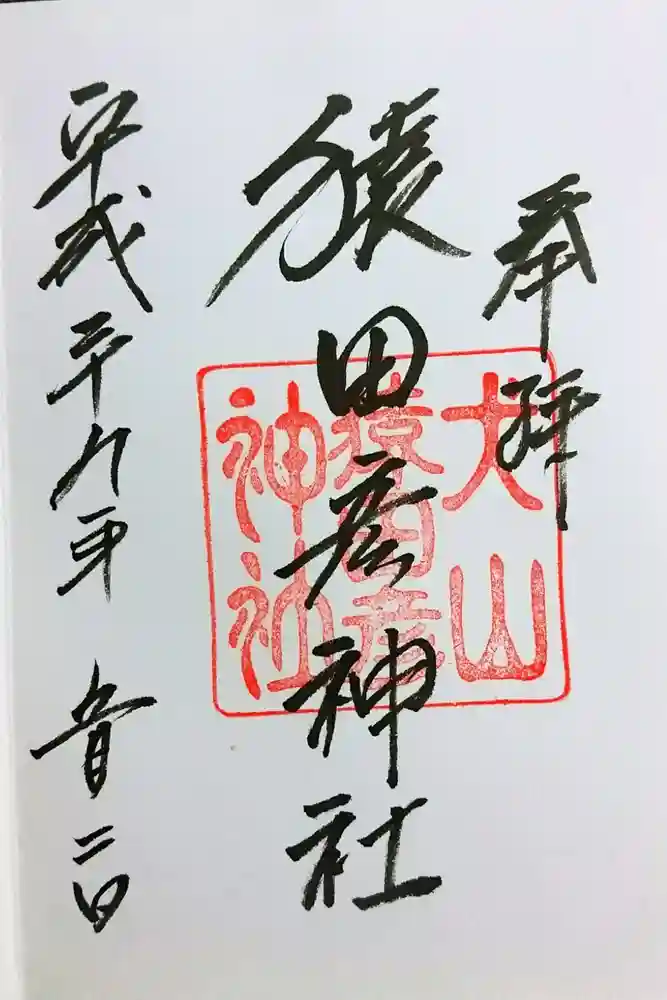 奉拝
猿田彦神社
平成二十九年 月二日
犬山
猿田彦
神社